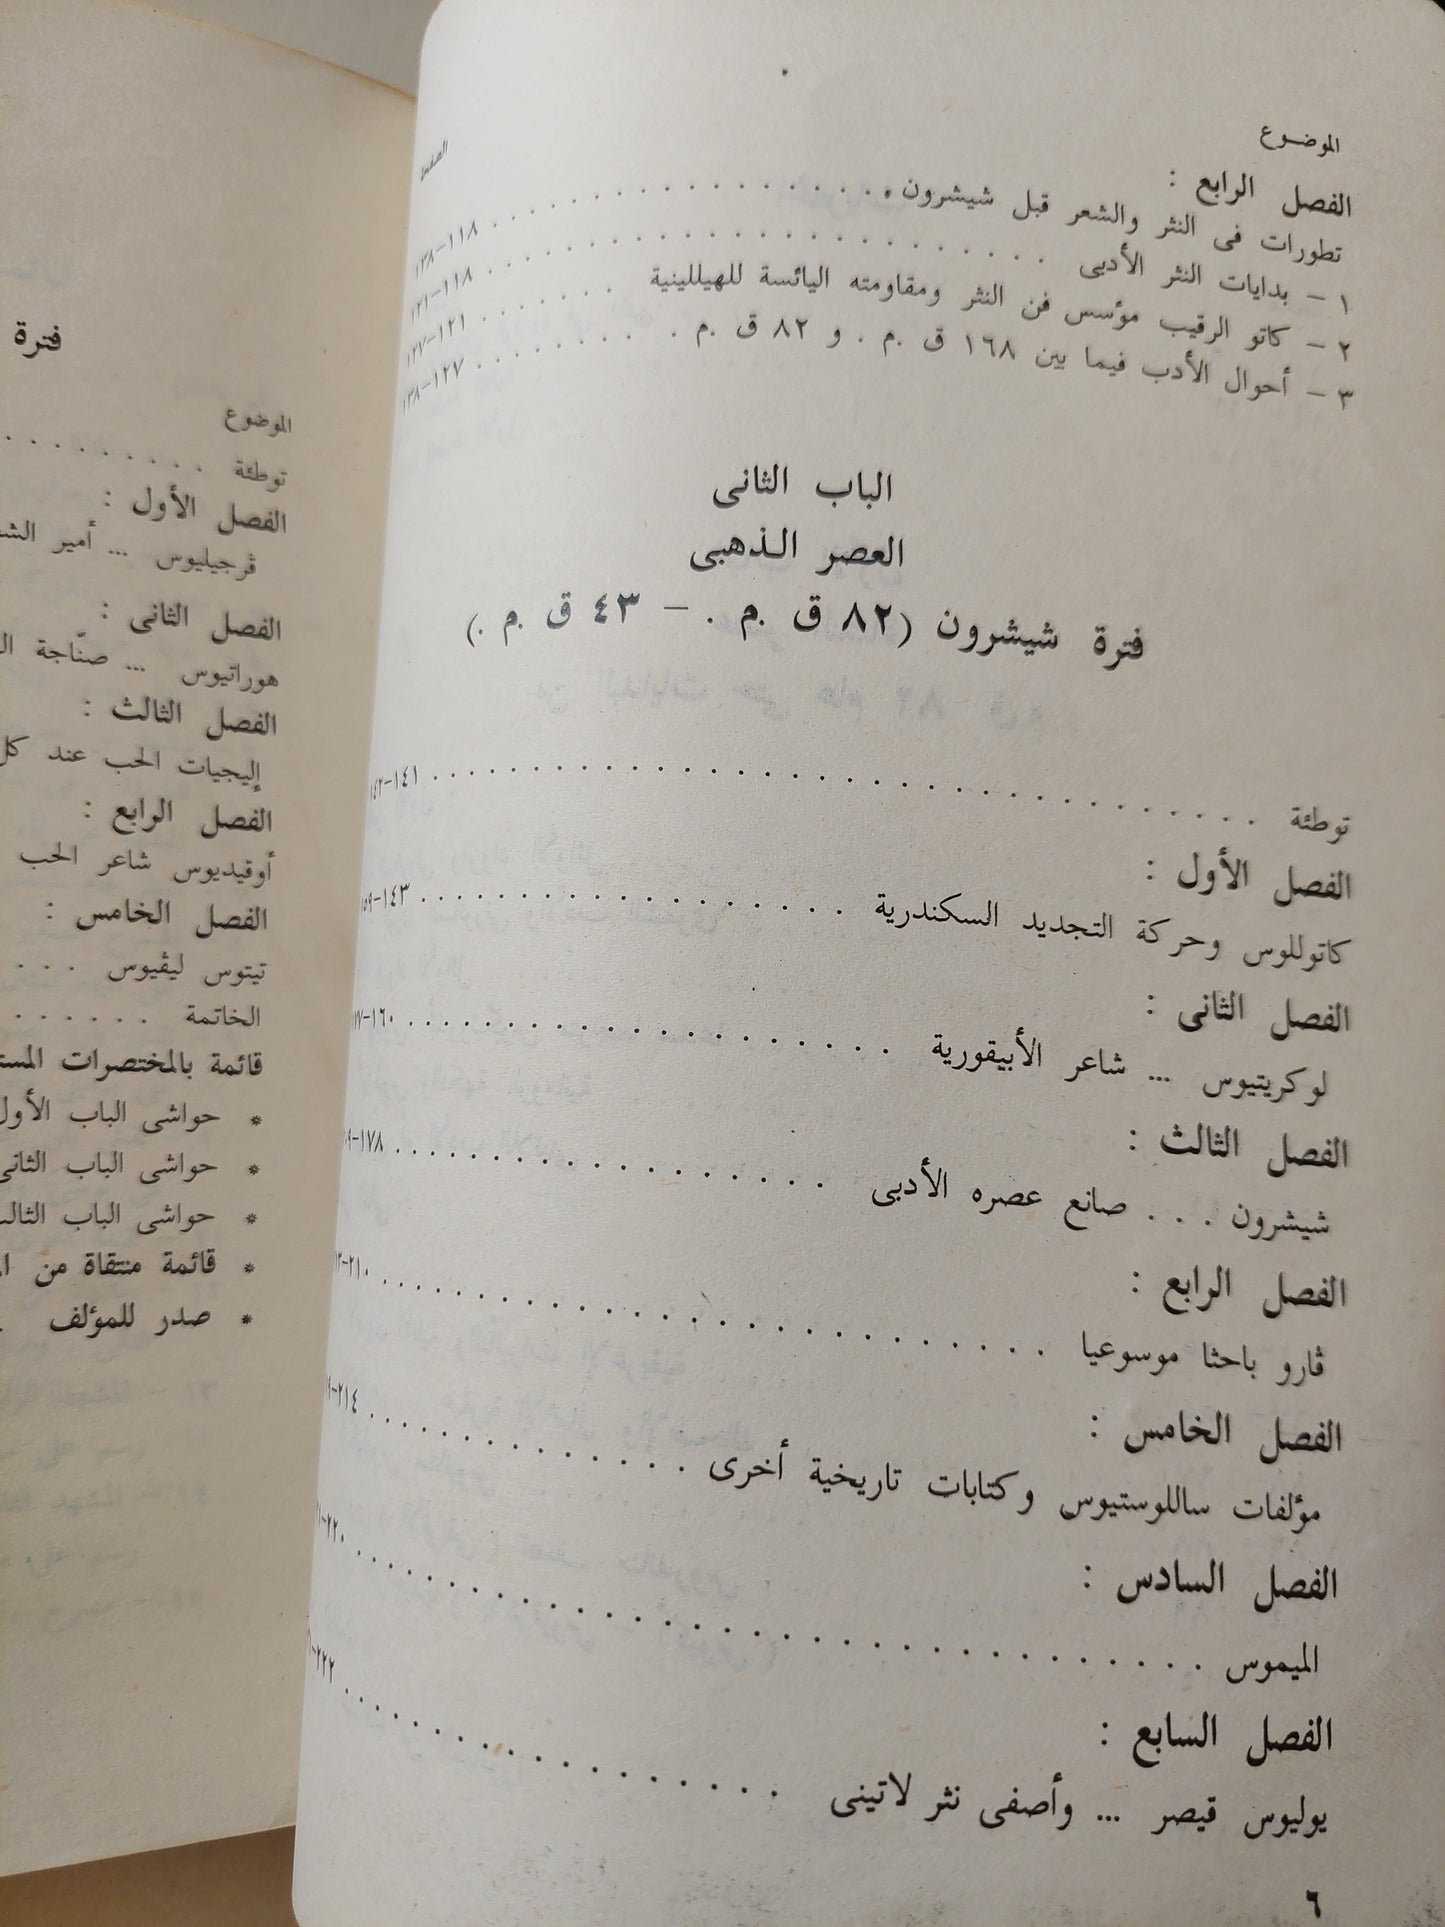 الموضوع الصفحة
الفصل الرابع :
تطورات فى النثر والشعر قبل شيشرون ١١٨-١٣٨
١ - بدايات النثر الأدبى ١١٨-١٢١
٢ - كاتو الرقيب مؤسس فن النثر ومقاومته اليائسة للهيللينية ١٢١-١٢٧
٣ - أحوال الأدب فيما بين ١٦٨ ق .م . و ٨٢ ق .م . ١٢٧-١٣٨
الباب الثانى
العصر الذهبى
فترة شيشرون (٨٢ ق .م . - ٤٣ ق .م .)
توطئة ١٤١-١٤٢
الفصل الأول :
كاتوللوس وحركة التجديد السكندرية ١٤٣-١٥٩
الفصل الثانى :
لوكريتيوس ... شاعر الأبيقورية ١٦٠-
الفصل الثالث :
شيشرون . . . صانع عصره الأدبى ١٧٨-
الفصل الرابع :
ڤارو باحثا موسوعيا ٢١٠-
الفصل الخامس :
مؤلفات ساللوستيوس وكتابات تاريخية أخرى ٢١٤-
الفصل السادس :
الميموس ٢٢٠-
الفصل السابع :
يوليوس قيصر ... وأصفى نثر لاتينى ٢٢٢-
٦
فترة
الموضوع
توطئة
الفصل الأول :
ڤرجيليوس ... أمير
الفصل الثانى :
هوراتيوس ... صنّاجة
الفصل الثالث :
إليجيات الحب عند
الفصل الرابع :
أوڤيديوس شاعر الحب
الفصل الخامس :
تيتوس ليڤيوس
الخاتمة
قائمة بالمختصرات
* حواشى الباب الأول
* حواشى الباب الثانى
* حواشى الباب
* قائمة منتقاة من
* صدر للمؤلف